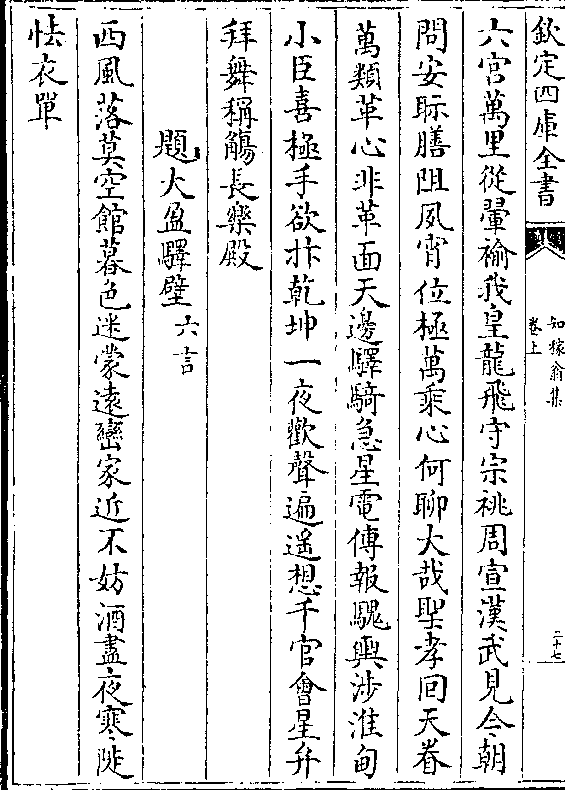 欽定四庫全書
知稼翁集
卷上
二十七
六宮萬里從翬褕我皇龍飛守宗祧周宣漢武見今朝
問安眎膳阻夙宵位極萬乘心何聊大哉聖孝回天眷
萬類革心非革面天邊驛騎急星電傳報騩輿涉淮甸
小臣喜極手欲抃乾坤一夜歡聲遍遥想千官會星弁
拜舞稱觴長樂殿
題大盈驛壁六言
西風落莫空館暮色迷蒙遠巒家近不妨酒盡夜寒陡
怯衣單